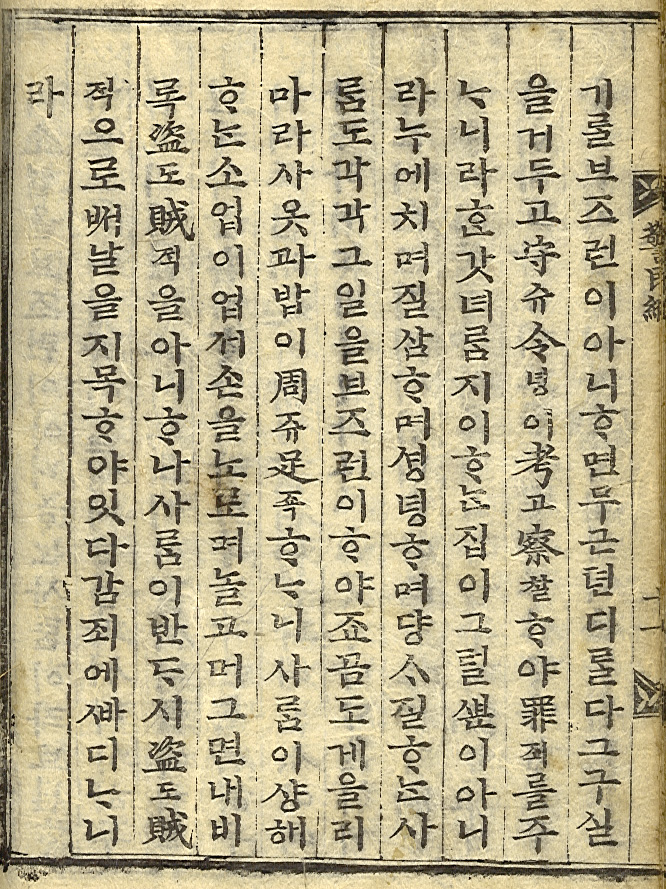 警民編
二一
기ᄅᆞᆯ브즈런이아니ᄒᆞ면무근뎐디ᄅᆞᆯ다그구실
을거두고守슈令녕이考고察찰ᄒᆞ야罪죄를주
ᄂᆞ니라ᄒᆞᆫ갓녀름지이ᄒᆞᄂᆞᆫ집이그럴ᄲᅮᆫ이아니
라누에치며질삼ᄒᆞ며셩녕ᄒᆞ며댱ᄉᆞ질ᄒᆞᄂᆞᆫ사
ᄅᆞᆷ도각각그일을브즈런이ᄒᆞ야죠곰도게을리
마라사옷과밥이周쥬足죡ᄒᆞᄂᆞ니사ᄅᆞᆷ이샹해
ᄒᆞᄂᆞᆫ소업이업서손을노로며놀고머그면내비
록盜도賊적을아니ᄒᆞ나사ᄅᆞᆷ이반ᄃᆞ시盜도賊
적으로ᄡᅥ날을지목ᄒᆞ야잇다감죄에ᄲᅡ디ᄂᆞ니
라